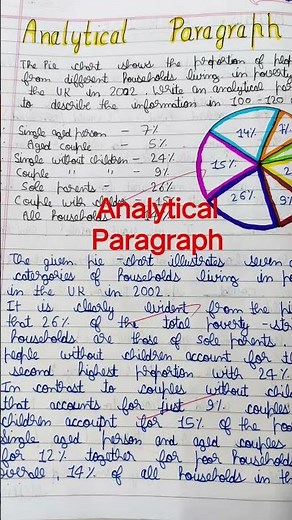 Analytical Paragraph
The Pie chart shows the proportion of peop
from different households living in poverty
the UK in 2002. Write an analytical par
to describe the information in 100-120
Single aged person - 7%
Aged couple - 5%
Single without children - 24%
Couple " " - 9%
Sole parents - 26%
Couple with
All households
14%
7%
15%
26%
9%
Analytical
Paragraph
The given pie-chart illustrates seven
categories of households living in po
in the UK in 2002.
It is clearly evident from the pi
that 26% of the total poverty-str
households are those of sole parents.
people without children account for th
second highest proportion with 24%.
In contrast to couples without child
that accounts for just 9% couples
children account for 15% of the poo
Single aged person and aged couples
for 12% together for poor households
overall, 14% of all households in th